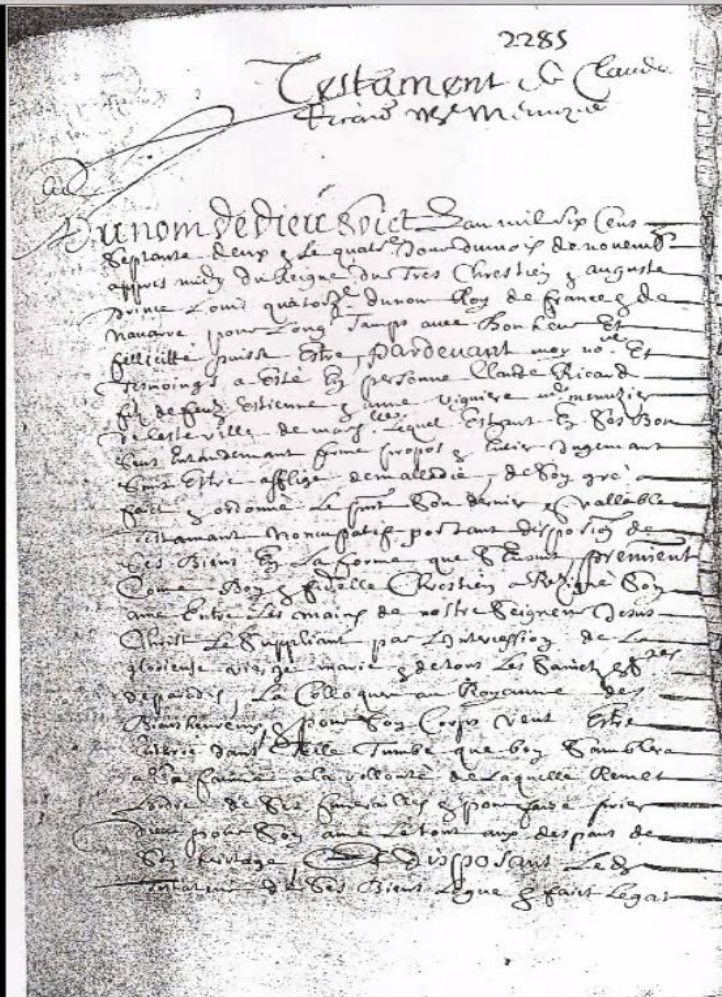 2285
Testament de Claude
Ricard Mre Menuzier
Au nom de dieu Soict L'an mil Six Cens
Septante deux & Le quatre Jour du mois de novemb
appres midy du Reigne du Tres Chrestien & auguste
prince Louis quatorze du nom Roy de france & de
navarre pour Long Temps avec Bonheur Et
fellicitté puisse Estre, Pardevant moy nore Et
Tesmoings a Esté En personne Claude Ricard
filz de feuz Estienne & anne viguiere mre menuzier
de Ceste ville de marslle Lequel Estant En Ses Bon
Sens Entandemant ferme propos & Entier Jugemant
Sans Estre afflige de malladie, de Son gré a
faict & ordonné Le pnt Son dernier & vallable
Testamant Noncupatif portant dispoon de
Ses Biens En La forme que S'Ensuit premiement
Come Bon & fidelle Chrestien a Rezigné Son
ame Entre Les mains de nostre Seigneur Jesus
Christ Le Suppliant par L'Intercession de La
glorieuse vierge marie & de tous Les Sainctz & Stes
de paradis, La Colloquer au Royaume des
Bienheureux, & pour Son Corps veut Estre
dans Telle Tumbe que bon Samblera
a Sa famme a la vollonté de Laquelle Remet
Lordre de Ses funerailles & pour faire prier
dieu pour Son ame Le tout aux despans de
Son heritage Et disposant Led
Testateur de Ses Biens Legue & faict Legat